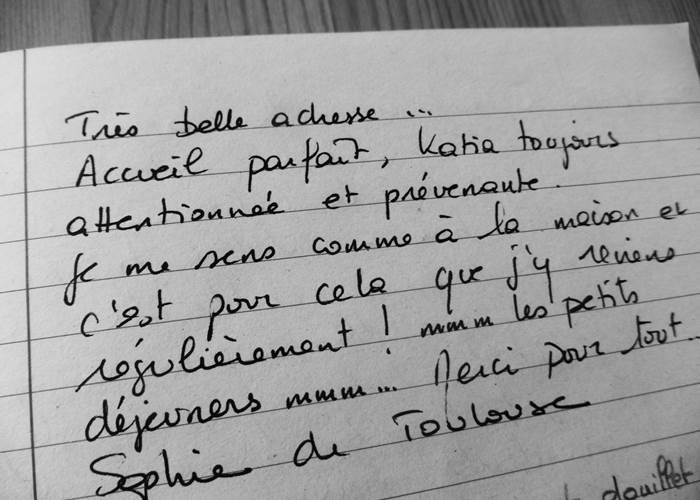 Très belle adresse ...
Accueil parfait, Katia toujours
attentionnée et prévenante.
Je me sens comme à la maison et
c'est pour cela que j'y reviens
régulièrement ! mmm les petits
déjeuners mmm... Merci pour tout...
Sophie de Toulouse
douillet